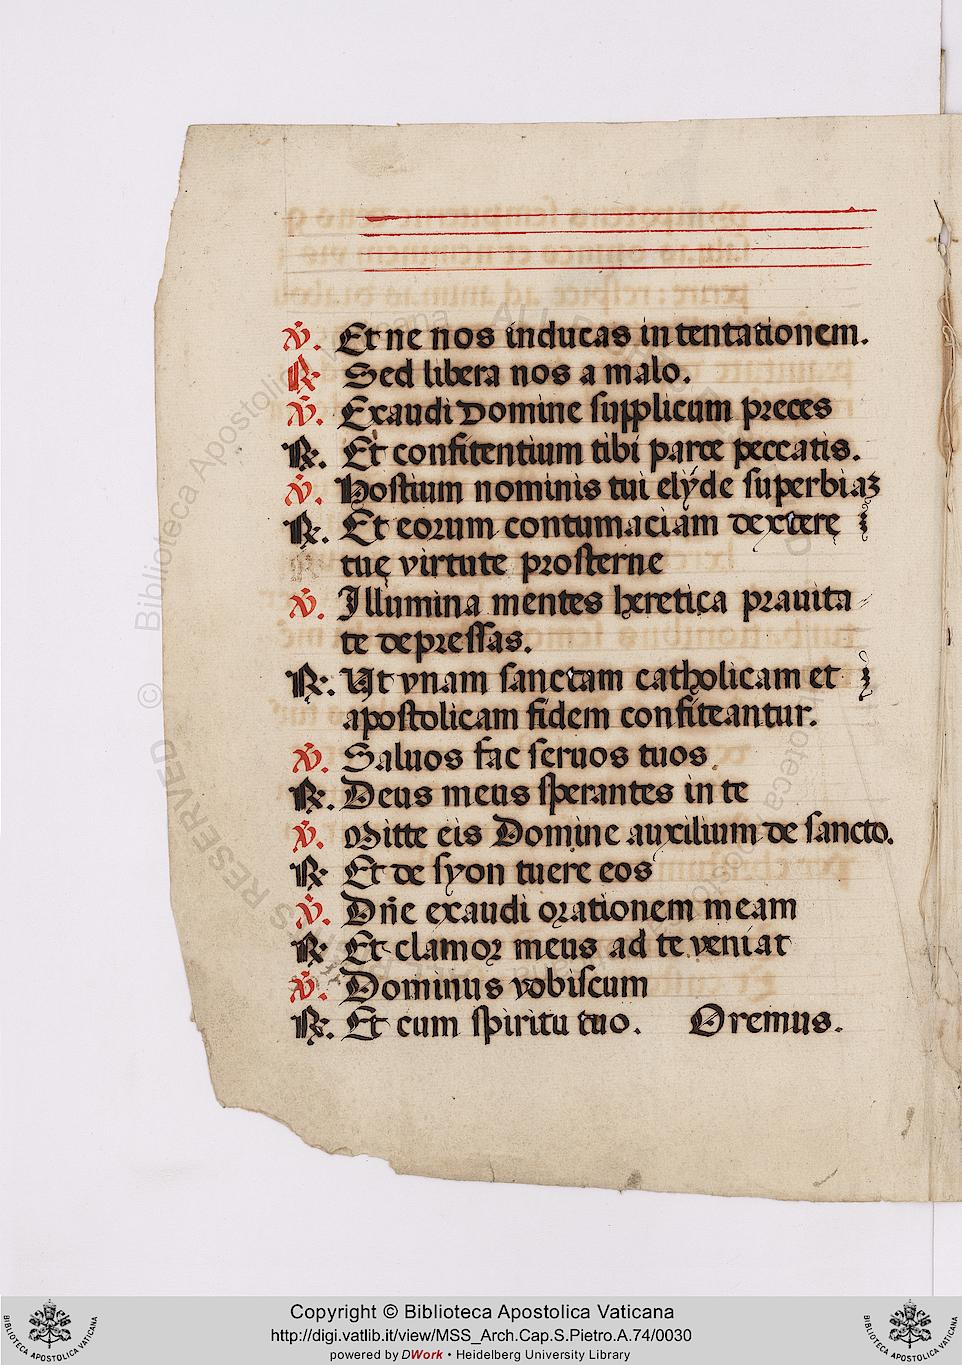 ℣. Et ne nos inducas in tentationem.
℟. Sed libera nos a malo.
℣. Exaudi Domine supplicum preces
℟. Et confitentium tibi parce peccatis.
℣. Hostium nominis tui elyde superbiaʒ
℟. Et eorum contumaciam dexterę
tuę virtute prosterne
℣. Illumina mentes heretica prauita
te depressas.
℟. Ut vnam sanctam catholicam et
apostolicam fidem confiteantur.
℣. Saluos fac seruos tuos.
℟. Deus meus sperantes in te
℣. Mitte eis Domine auxilium de sancto.
℟. Et de syon tuere eos
℣. Dn̄e exaudi orationem meam
℟. Et clamor meus ad te veniat
℣. Dominus vobiscum
℟. Et cum spiritu tuo. Oremus.
© Biblioteca Apostolica Vaticana ALL RIGHTS RESERVED
Copyright © Biblioteca Apostolica Vaticana
http://digi.vatlib.it/view/MSS_Arch.Cap.S.Pietro.A.74/0030
powered by DWork • Heidelberg University Library
BIBLIOTECA APOSTOLICA VATICANA
BIBLIOTECA APOSTOLICA VATICANA